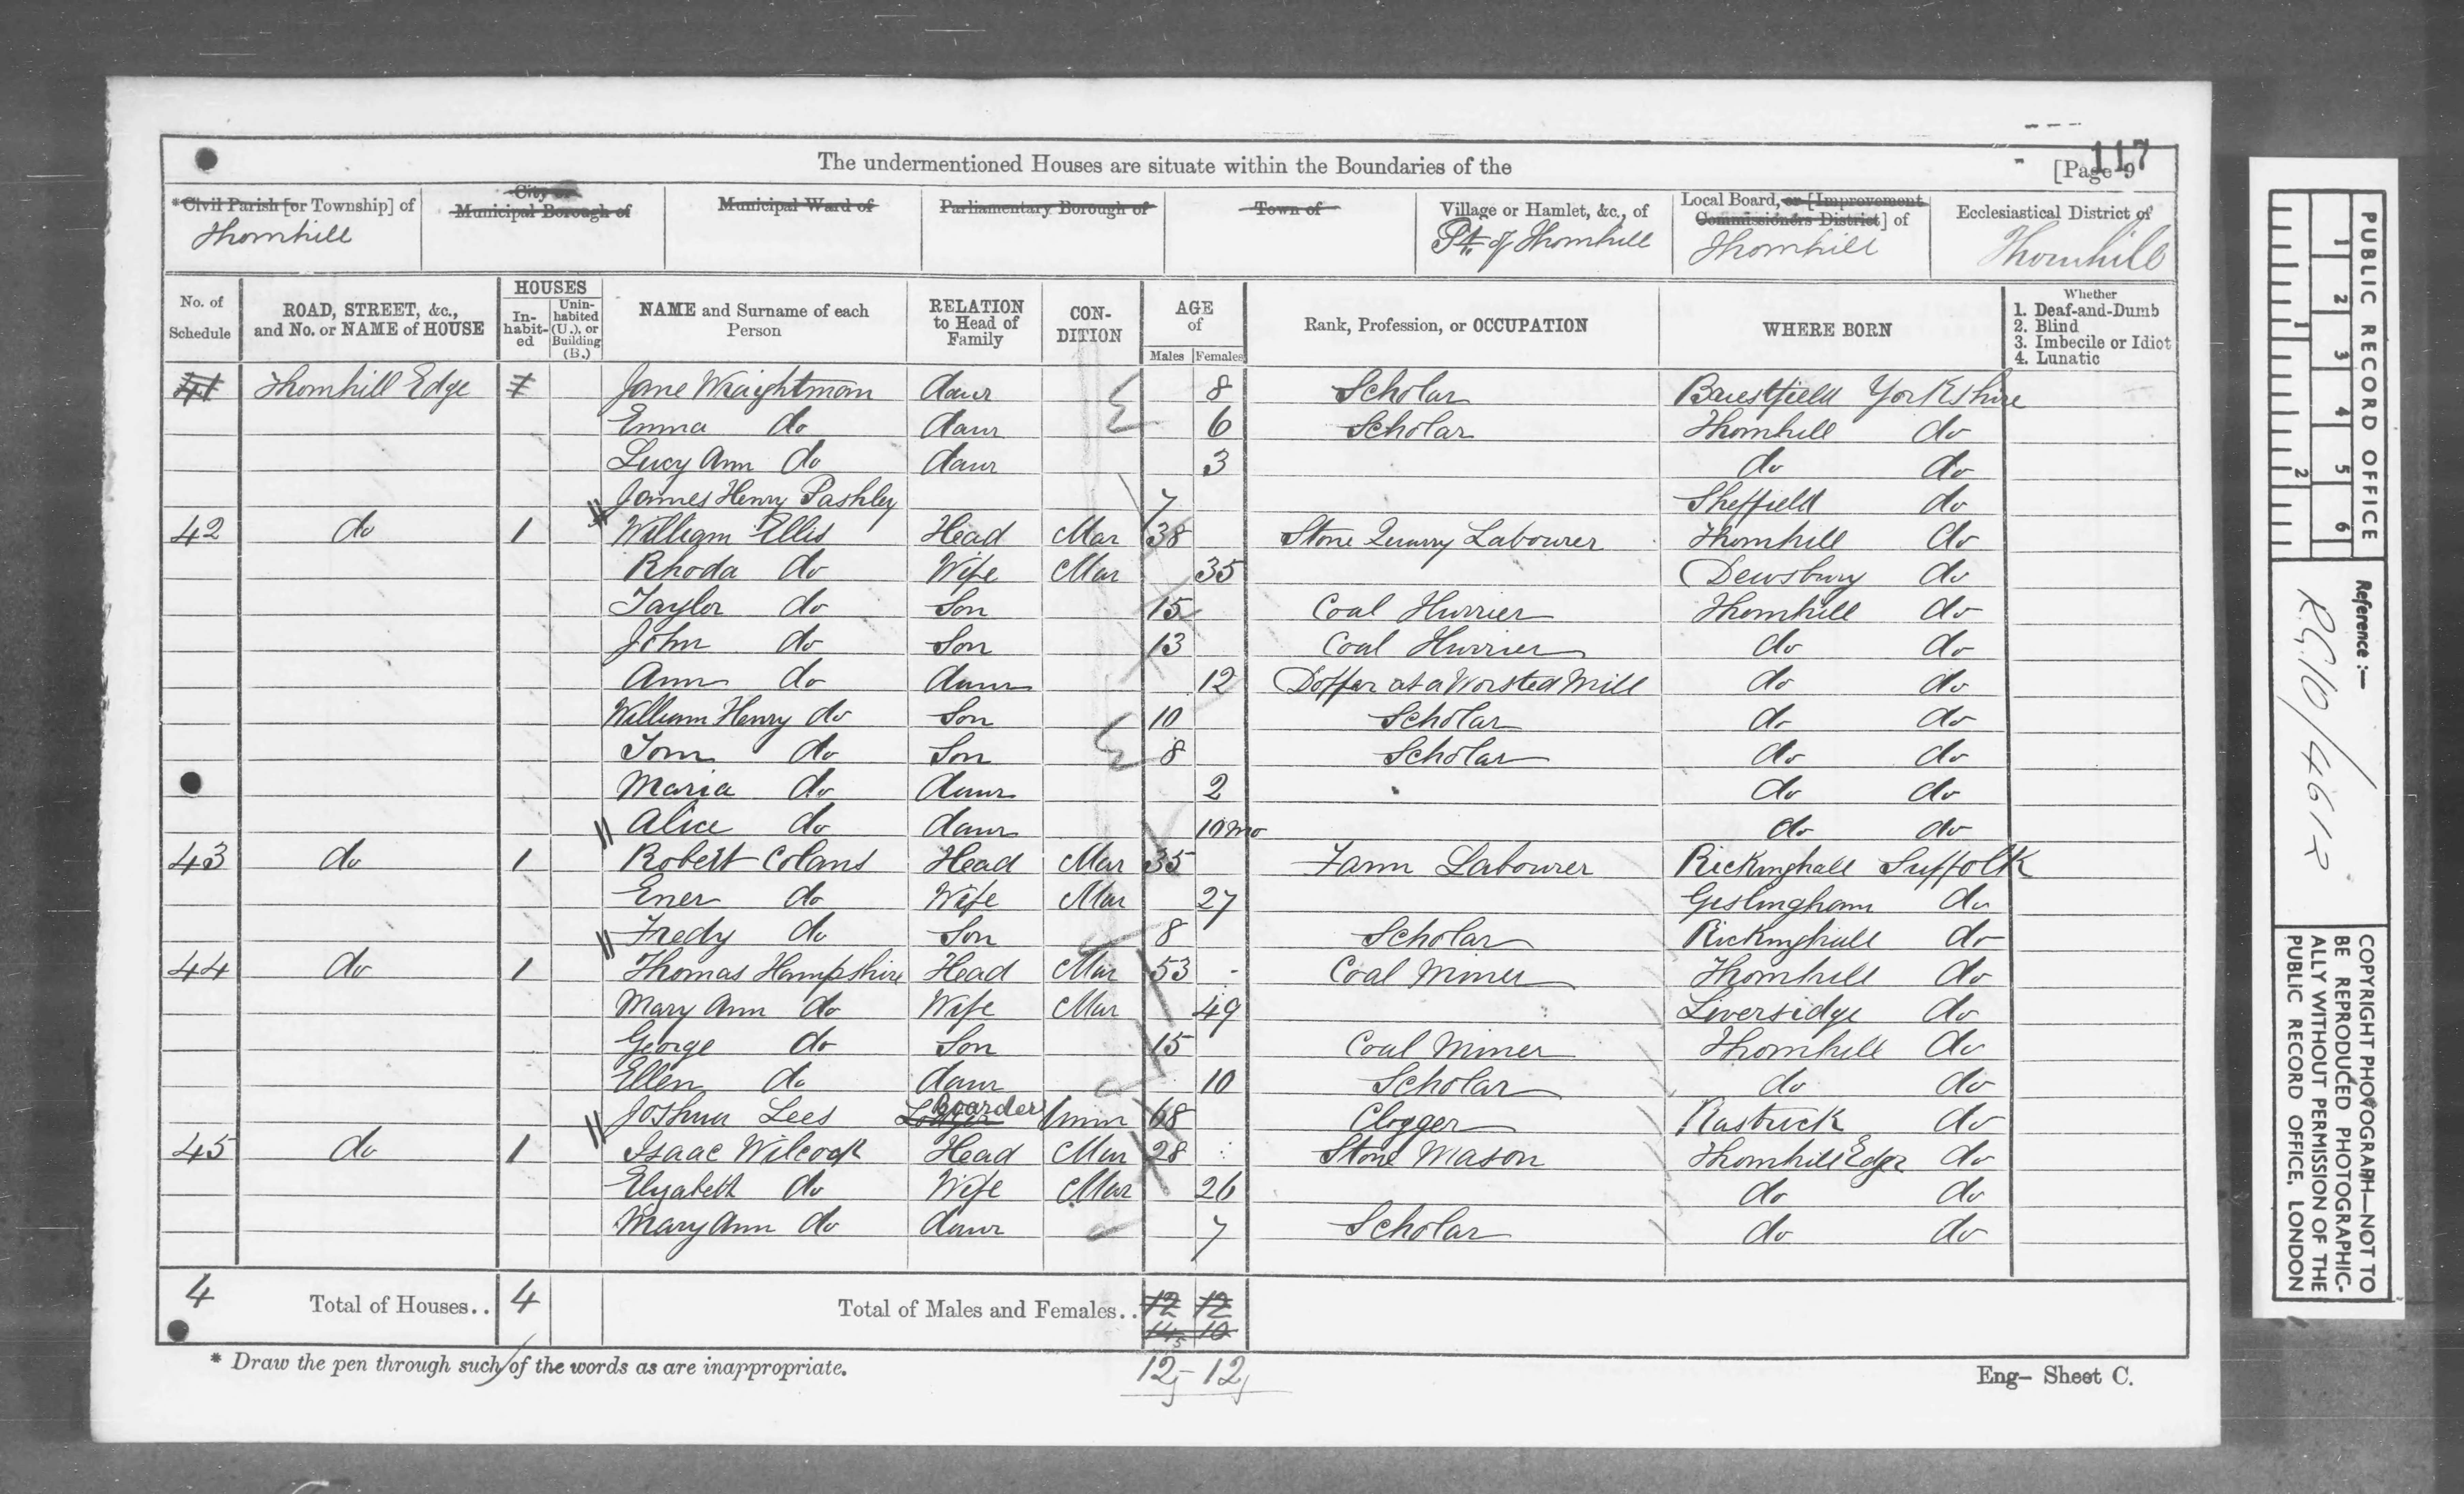 The undermentioned Houses are situate within the Boundaries of the
[Page 9
117
*Civil Parish [or Township] of
Thornhill
City or
Municipal Borough of
Municipal Ward of
Parliamentary Borough of
Town of
Village or Hamlet, &c., of
Pt. of Thornhill
Local Board, or [Improvement
Commissioners District] of
Thornhill
Ecclesiastical District of
Thornhill
No. of
Schedule
ROAD, STREET, &c.,
and No. or NAME of HOUSE
HOUSES
In-
habit-
ed
Unin-
habited
(U.), or
Building
(B.)
NAME and Surname of each
Person
RELATION
to Head of
Family
CON-
DITION
AGE
of
Males Females
Rank, Profession, or OCCUPATION
WHERE BORN
Whether
1. Deaf-and-Dumb
2. Blind
3. Imbecile or Idiot
4. Lunatic
41 Thornhill Edge Jane Wraightman daur 8 Scholar Briestfield Yorkshire
Emma do daur 6 Scholar Thornhill do
Lucy Ann do daur 3 do do
James Henry Pashley 7 Sheffield do
42 do 1 William Ellis Head Mar 38 Stone Quarry Labourer Thornhill do
Rhoda do Wife Mar 35 Dewsbury do
Taylor do Son 15 Coal Hurrier Thornhill do
John do Son 13 Coal Hurrier do do
Ann do daur 12 Doffer at a Worsted Mill do do
William Henry do Son 10 Scholar do do
Tom do Son 8 Scholar do do
Maria do daur 2 do do
Alice do daur 10mo do do
43 do 1 Robert Colans Head Mar 35 Farm Labourer Rickinghall Suffolk
Ener do Wife Mar 27 Gislingham do
Fredy do Son 8 Scholar Rickinghall do
44 do 1 Thomas Hampshire Head Mar 53 Coal Miner Thornhill do
Mary Ann do Wife Mar 49 Liversidge do
George do Son 15 Coal Miner Thornhill do
Ellen do daur 10 Scholar do do
Joshua Lees Lodger boarder Unm 68 Clogger Rastrick do
45 do 1 Isaac Wilcock Head Mar 28 Stone Mason Thornhill Edge do
Elyabeth do Wife Mar 26 do do
Mary Ann do daur 7 Scholar do do
4 Total of Houses.. 4 Total of Males and Females.. 12 12
14 10
12 12
* Draw the pen through such of the words as are inappropriate.
Eng— Sheet C.
PUBLIC RECORD OFFICE
1 2 3 4 5 6
1 2
Reference :—
R.G.10/4612
COPYRIGHT PHOTOGRAPH—NOT TO
BE REPRODUCED PHOTOGRAPHIC-
ALLY WITHOUT PERMISSION OF THE
PUBLIC RECORD OFFICE, LONDON